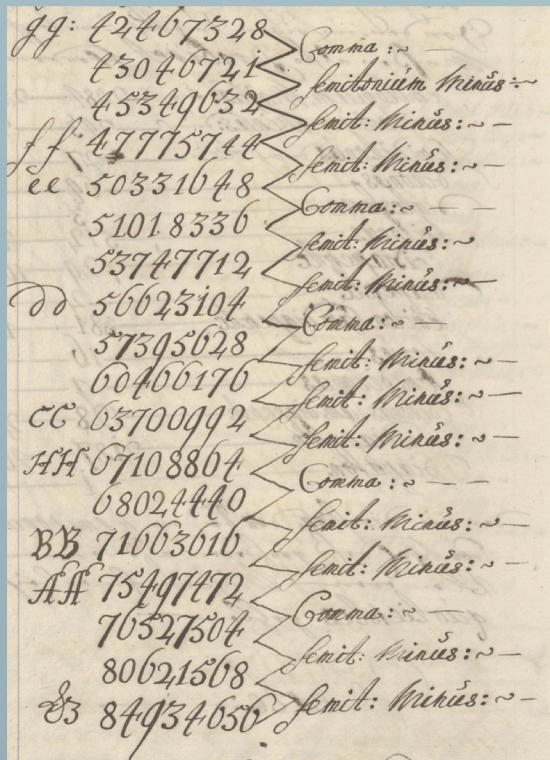 gg: 42467328
Comma :~ —
43046721
semitonium Minus:~
45349632
semit: Minus:~ —
ff 47775744
semit: Minus:~ —
ee 50331648
Comma:~ — —
51018336
semit: Minus:~
53747712
semit: Minus:~ —
dd 56623104
Comma:~ —
57395628
semit: Minus:~ —
60466176
semit: Minus:~ —
cc 63700992
semit: Minus:~ —
HH 67108864
Comma :~ — —
68024440
semit: Minus:~ —
BB 71663616
semit: Minus:~ —
AA 75497472
Comma:~ —
76527504
semit: Minus:~ —
80621568
semit: Minus:~ —
84934656